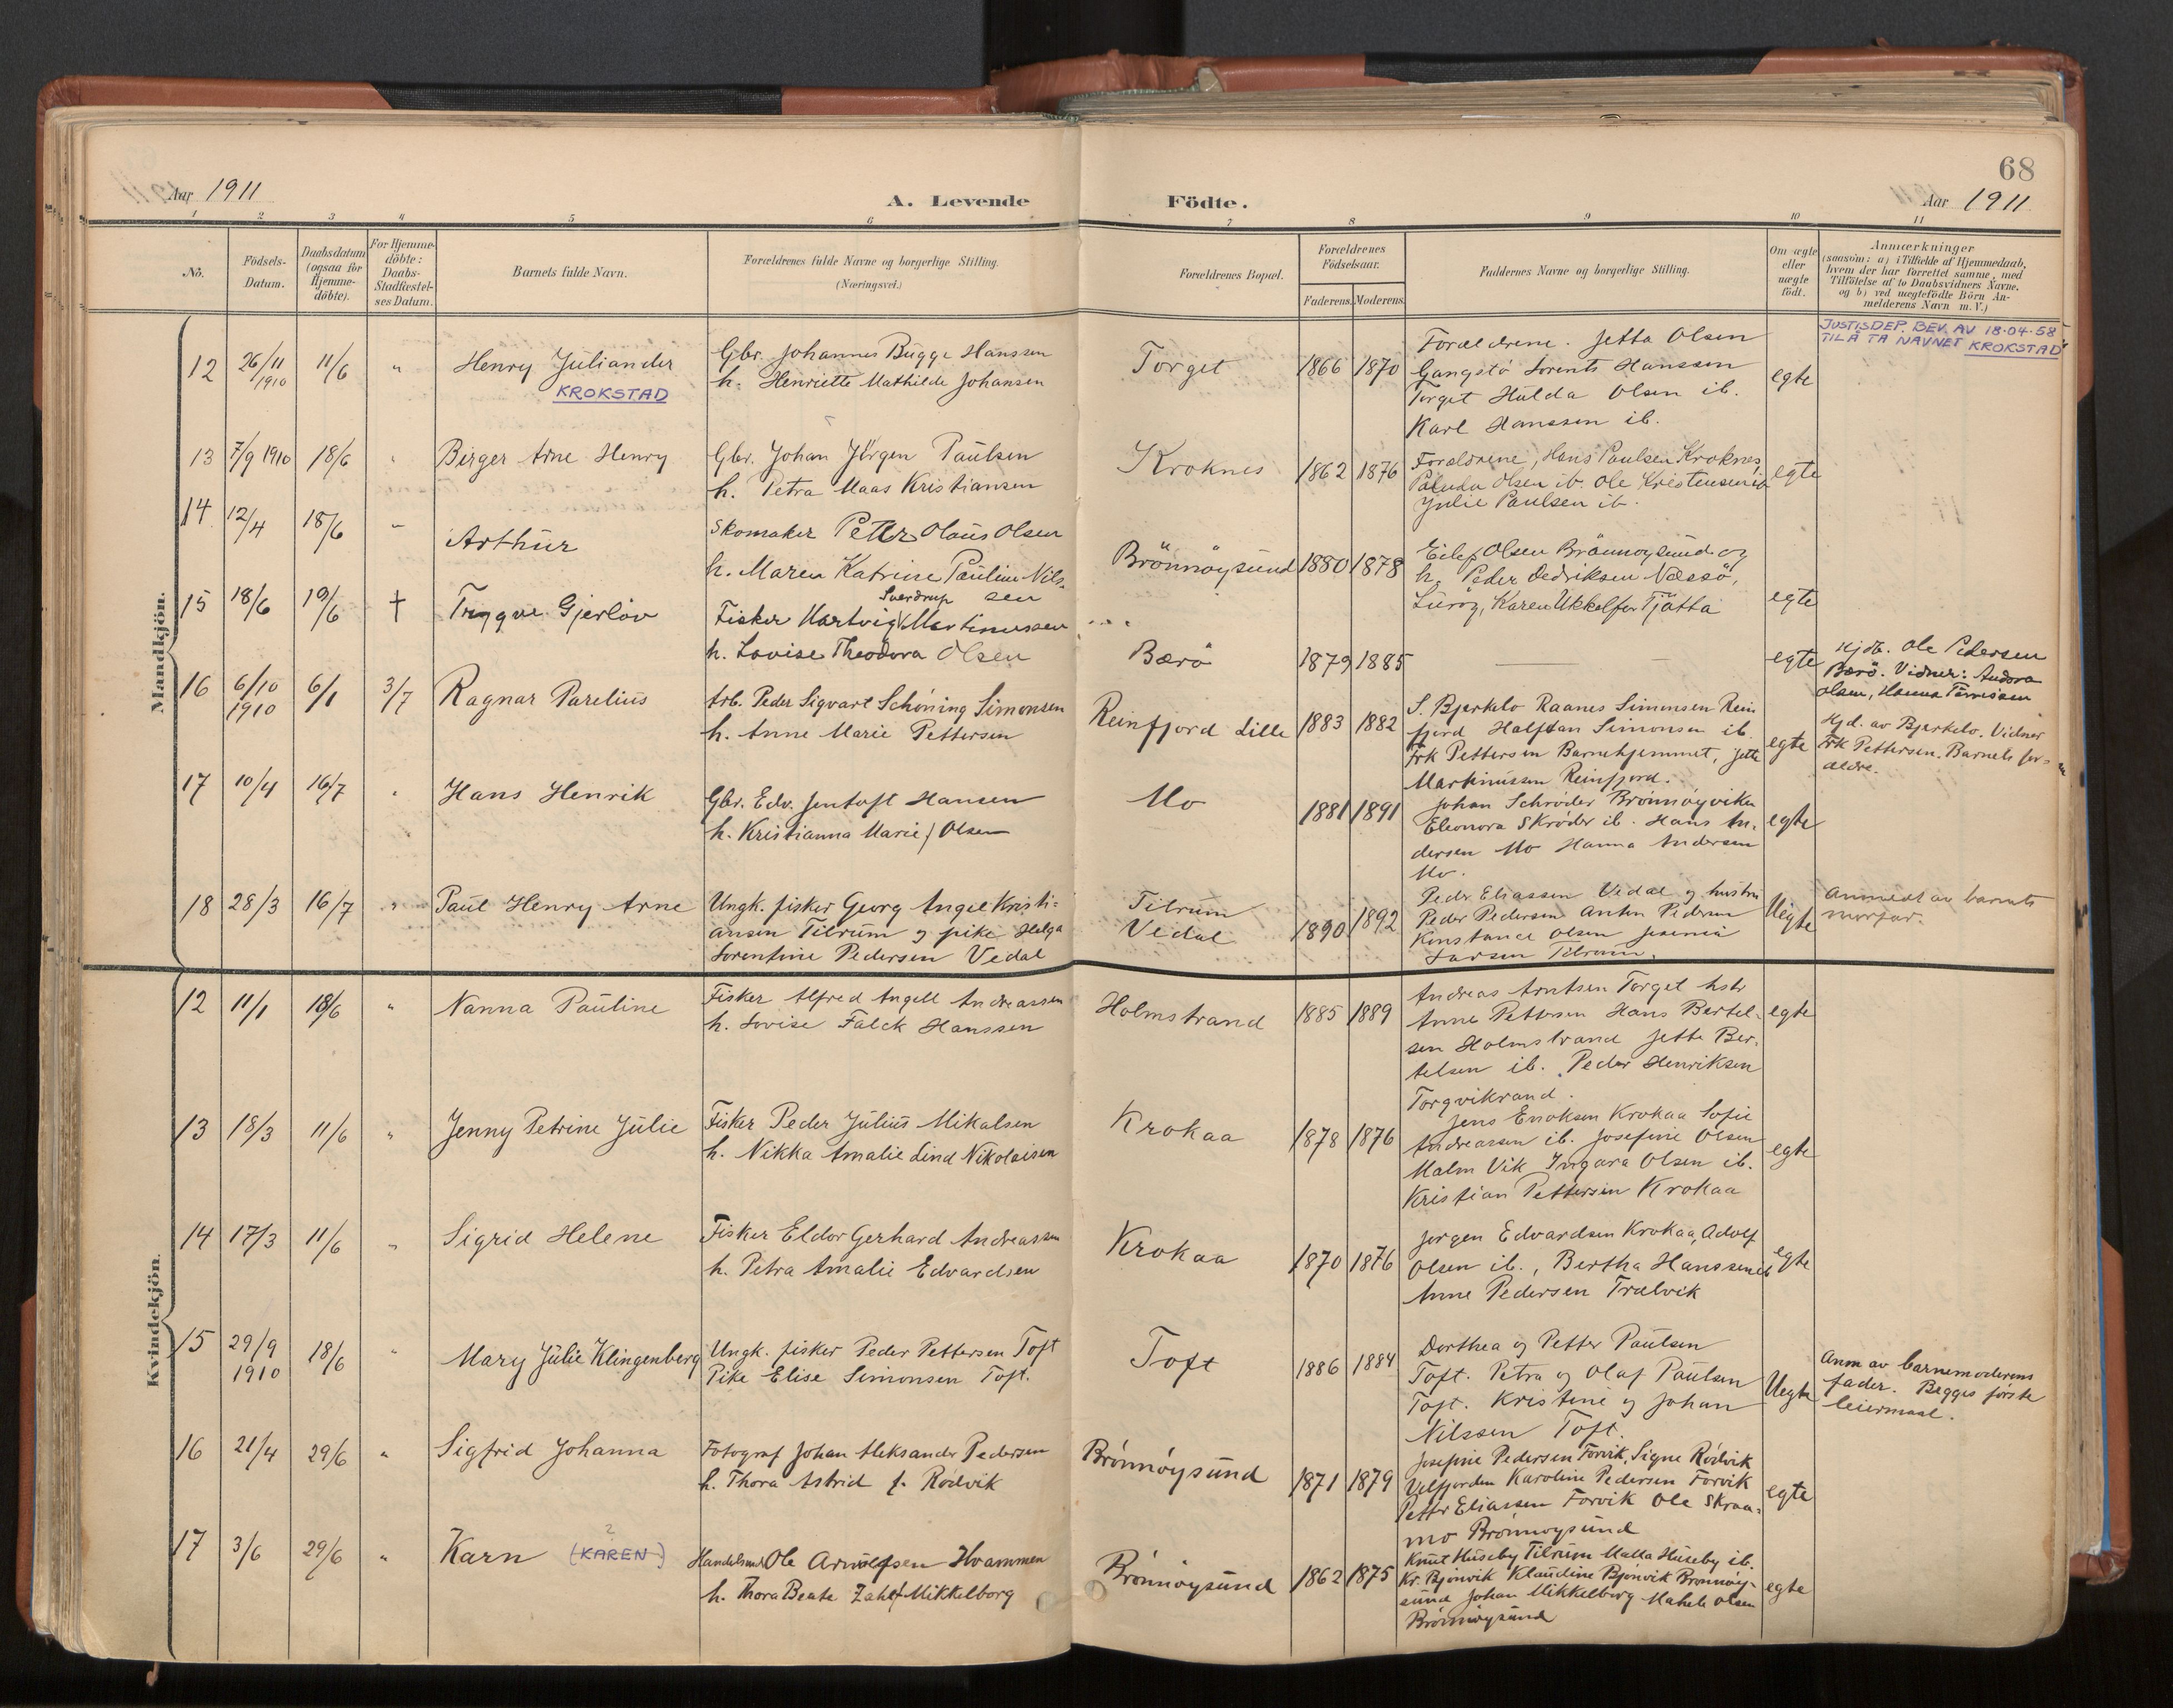 68
Aar 1911
A. Levende
Födte.
Aar 1911
1 2 3 4 5 6 7 8 9 10 11
No.
Födsels-
Datum.
Daabsdatum
(ogsaa for
Hjemme-
döbte).
For Hjemme-
döbte:
Daabs-
Stadfæstel-
ses Datum.
Barnets fulde Navn.
Forældrenes fulde Navne og borgerlige Stilling.
(Næringsvei.)
Forældrenes Bopæl.
Forældrenes
Födselsaar.
Faderens.
Moderens.
Faddernes Navne og borgerlige Stilling.
Om ægte
eller
uægte
födt.
Anmærkninger
(saasom: a) i Tilfælde af Hjemmedaab,
hvem der har forrettet samme, med
Tilföielse af to Daabsvidners Navne.
og b) ved uægtefödte Börn An-
melderens Navn m. V.)
Mandkjön.
12 26/11 1910 11/6 " Henry Juliander
KROKSTAD
Gbr. Johannes Bugge Hanssen
h. Henriette Mathilde Johansen
Torget 1866 1870
Forældrene. Jetta Olsen
Gangstö Lorents Hanssen
Torget Hulda Olsen ib.
Karl Hanssen ib.
egte
JUSTISDEP. BEV. AV 18.04.58
TIL Å TA NAVNET KROKSTAD
13 7/9 1910 18/6 " Birger Arne Henry
Gbr. Johan Jörgen Paulsen
h. Petra Maas Kristiansen
Kroknes 1862 1876
Forældrene, Hans Paulsen Kroknes
Olsen ib. Ole Kristensen ib
Julie Paulsen ib.
egte
14 12/4 18/6 " Arthur
Skomaker Petter Olaus Olsen
h. Maren Katrine Pauline Nils-
sen
Brönnöysund 1880 1878
Eilif Olsen Brönnöysund og
h. Peder Dedriksen Næssö,
Luröy, Karen Tjötta
egte
15 18/6 19/6 † Trygve Gjerlöv
Sverdrup
Fisker Hartvig Martinussen
h. Lovise Theodora Olsen
Bærö 1879 1885 —
egte
Hjdb. Ole Pedersen
Bærö. Vidner: Andora
Olsen, Hanna
16 6/10 1910 6/1 3/7 Ragnar Parelius
Arb. Peder Sigvart Schöning Simonsen
h. Anne Marie Pettersen
Reinfjord Lille 1883 1882
S. Bjerkelo Raanes Simonsen Rein
fjord Halfdan Simonsen ib.
Frk Pettersen Barnehjemmet, Jette
Martinussen Reinfjord.
egte
Hjd. av Bjerkelo. Vidner
Frk Pettersen. Barnets for-
ældre.
17 10/4 16/7 " Hans Henrik
Gbr. Edv. Jentoft Hansen
h. Kristianna Marie f Olsen
Mo 1881 1891
Johan Schröder Brönnöyviken
Eleonora Skröder ib. Hans An-
dersen Mo Hanna Andersen
Mo.
egte
18 28/3 16/7 " Paul Henry Arne
Ungk. fisker Georg Angel Kristi-
ansen Tilrum og pike Helga
Lorentine Pedersen Vedal
Tilrum
Vedal
1890 1892
Peder Eliassen Vedal og hustru
Peder Pedersen Anton Pedersen
Konstance Olsen
Larsen Tilrum.
Uegte
Anmeldt av barnets
morfar.
Kvindekjön.
12 11/1 18/6 " Nanna Pauline
Fisker Alfred Angell Andreassen
h. Lovise Falck Hanssen
Holmstrand 1885 1889
Andreas Arntsen Torget hstr
Anne Pettersen Hans Bertel-
sen Holmstrand Jette Ber-
telsen ib. Peder Henriksen
Torgvikrand.
egte
13 18/3 11/6 " Jenny Petrine Julie
Fisker Peder Julius Mikalsen
h. Nikka Amalie Lind Nikolaisen
Krokaa 1878 1876
Jens Enoksen Krokaa Sofie
Andreassen ib. Josefine Olsen
Malm Vik Ingara Olsen ib.
Kristian Pettersen Krokaa
egte
14 17/3 11/6 " Sigrid Helene
Fisker Eldor Gerhard Andreassen
h. Petra Amalie Edvardsen
Krokaa 1870 1876
Jörgen Edvardsen Krokaa, Adolf
Olsen ib., Bertha Hanssen ib
Anne Pedersen Trælvik
egte
15 29/9 1910 18/6 " Mary Julie Klingenberg
Ungk. fisker Peder Pettersen Toft
Pike Elise Simonsen Toft.
Toft 1886 1884
Dorthea og Petter Paulsen
Toft. Petra og Olaf Paulsen
Toft. Kristine og Johan
Nilssen Toft.
Uegte
Anm av barnemoderens
fader. Begges första
leiermaal.
16 21/4 29/6 " Sigfrid Johanna
Fotograf Johan Aleksander Pedersen
h. Thora Astrid f. Rödvik
Brönnöysund 1871 1879
Josefine Pedersen Forvik, Signe Rödvik
Velfjorden Karoline Pedersen Forvik
Petter Eliassen Forvik Ole Skraa-
mo Brönnöysund
egte
17 3/6 29/6 " Karn (KAREN)
Handelsmd. Ole Arnolfsen Hvammen
h. Thora Beate Zahl f Mikkelborg
Brönnöysund 1862 1875
Knut Huseby Tilrum Malla Huseby ib.
Kr. Bjönvik Klaudine Bjönvik Brönnöy-
sund Johan Mikkelborg Makele Olsen
Brönnöysund
egte